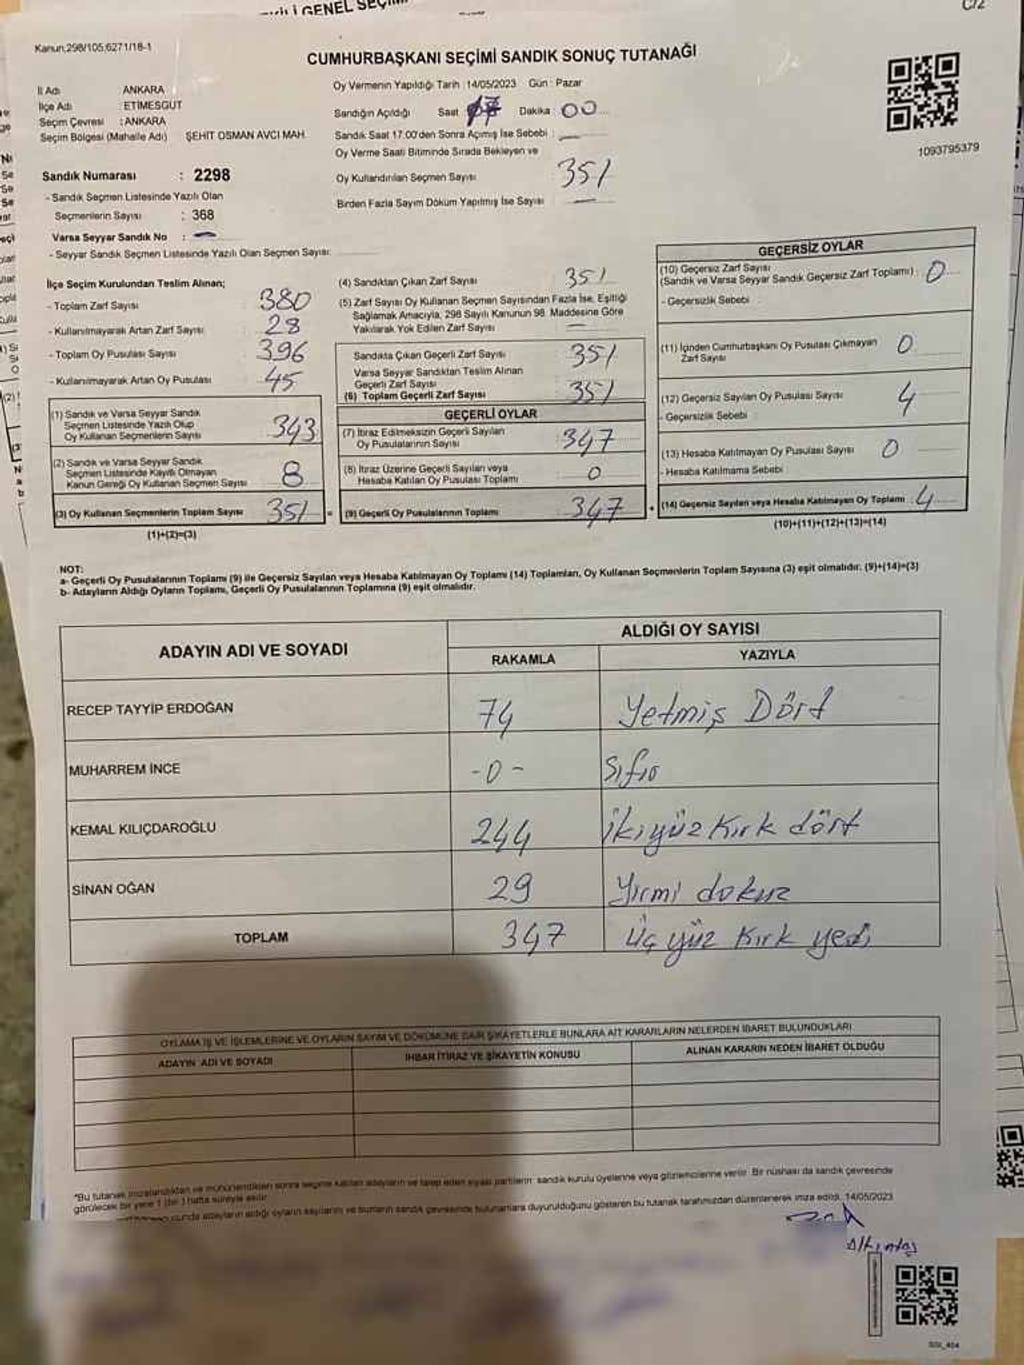 GENEL SEÇİM
C/2
Kanun,298/105;6271/18-1
CUMHURBAŞKANI SEÇİMİ SANDIK SONUÇ TUTANAĞI
İl Adı ANKARA
İlçe Adı : ETİMESGUT
Seçim Çevresi : ANKARA
Seçim Bölgesi (Mahalle Adı) ŞEHİT OSMAN AVCI MAH.
Oy Vermenin Yapıldığı Tarih : 14/05/2023 Gün : Pazar
Sandığın Açıldığı Saat 17 Dakika : 00
Sandık Saat 17.00'den Sonra Açımış İse Sebebi : —
Oy Verme Saati Bitiminde Sırada Bekleyen ve
Oy Kullandırılan Seçmen Sayısı 351
Birden Fazla Sayım Döküm Yapılmış İse Sayısı —
1093795379
Sandık Numarası : 2298
- Sandık Seçmen Listesinde Yazılı Olan
Seçmenlerin Sayısı : 368
Varsa Seyyar Sandık No : —
- Seyyar Sandık Seçmen Listesinde Yazılı Olan Seçmen Sayısı:
İlçe Seçim Kurulundan Teslim Alınan;
- Toplam Zarf Sayısı : 380
- Kullanılmayarak Artan Zarf Sayısı : 28
- Toplam Oy Pusulası Sayısı : 396
- Kullanılmayarak Artan Oy Pusulası : 45
(1) Sandık ve Varsa Seyyar Sandık
Seçmen Listesinde Yazılı Olup
Oy Kullanan Seçmenlerin Sayısı : 343
(2) Sandık ve Varsa Seyyar Sandık
Seçmen Listesinde Kayıtlı Olmayan
Kanun Gereği Oy Kullanan Seçmen Sayısı : 8
(3) Oy Kullanan Seçmenlerin Toplam Sayısı : 351
(1)+(2)=(3)
(4) Sandıktan Çıkan Zarf Sayısı : 351
(5) Zarf Sayısı Oy Kullanan Seçmen Sayısından Fazla İse, Eşitliği
Sağlamak Amacıyla, 298 Sayılı Kanunun 98. Maddesine Göre
Yakılarak Yok Edilen Zarf Sayısı : —
Sandıkta Çıkan Geçerli Zarf Sayısı : 351
Varsa Seyyar Sandıktan Teslim Alınan
Geçerli Zarf Sayısı
(6) Toplam Geçerli Zarf Sayısı : 351
GEÇERLİ OYLAR
(7) İtiraz Edilmeksizin Geçerli Sayılan
Oy Pusulalarının Sayısı : 347
(8) İtiraz Üzerine Geçerli Sayılan veya
Hesaba Katılan Oy Pusulası Toplamı : 0
= (9) Geçerli Oy Pusulalarının Toplamı : 347
GEÇERSİZ OYLAR
(10) Geçersiz Zarf Sayısı
(Sandık ve Varsa Seyyar Sandık Geçersiz Zarf Toplamı) : 0
- Geçersizlik Sebebi :
(11) İçinden Cumhurbaşkanı Oy Pusulası Çıkmayan
Zarf Sayısı : 0
(12) Geçersiz Sayılan Oy Pusulası Sayısı : 4
- Geçersizlik Sebebi :
(13) Hesaba Katılmayan Oy Pusulası Sayısı : 0
- Hesaba Katılmama Sebebi :
+ (14) Geçersiz Sayılan veya Hesaba Katılmayan Oy Toplamı : 4
(10)+(11)+(12)+(13)=(14)
NOT:
a- Geçerli Oy Pusulalarının Toplamı (9) ile Geçersiz Sayılan veya Hesaba Katılmayan Oy Toplamı (14) Toplamları, Oy Kullanan Seçmenlerin Toplam Sayısına (3) eşit olmalıdır. (9)+(14)=(3)
b- Adayların Aldığı Oyların Toplamı, Geçerli Oy Pusulalarının Toplamına (9) eşit olmalıdır.
ADAYIN ADI VE SOYADI ALDIĞI OY SAYISI
RAKAMLA YAZIYLA
RECEP TAYYİP ERDOĞAN 74 Yetmiş Dört
MUHARREM İNCE -0- Sıfır
KEMAL KILIÇDAROĞLU 244 İkiyüz Kırk dört
SİNAN OĞAN 29 Yirmi dokuz
TOPLAM 347 Üç yüz Kırk yedi
OYLAMA İŞ VE İŞLEMLERİNE VE OYLARIN SAYIM VE DÖKÜMÜNE DAİR ŞİKAYETLERLE BUNLARA AİT KARARLARIN NELERDEN İBARET BULUNDUKLARI
ADAYIN ADI VE SOYADI İHBAR İTİRAZ VE ŞİKAYETİN KONUSU ALINAN KARARIN NEDEN İBARET OLDUĞU
*Bu tutanak imzalandıktan ve mühürlendikten sonra seçime katılan adayların ve talep eden siyasi partilerin sandık kurulu üyelerine veya gözlemcilerine verilir. Bir nüshası da sandık çevresinde
görülecek bir yere 1 (bir) hafta süreyle asılır.
adayların aldığı oyların sayılarını ve bunların sandık çevresinde bulunanlara duyurulduğunu gösteren bu tutanak tarafımızdan düzenlenerek imza edildi. 14/05/2023
Altıntaş